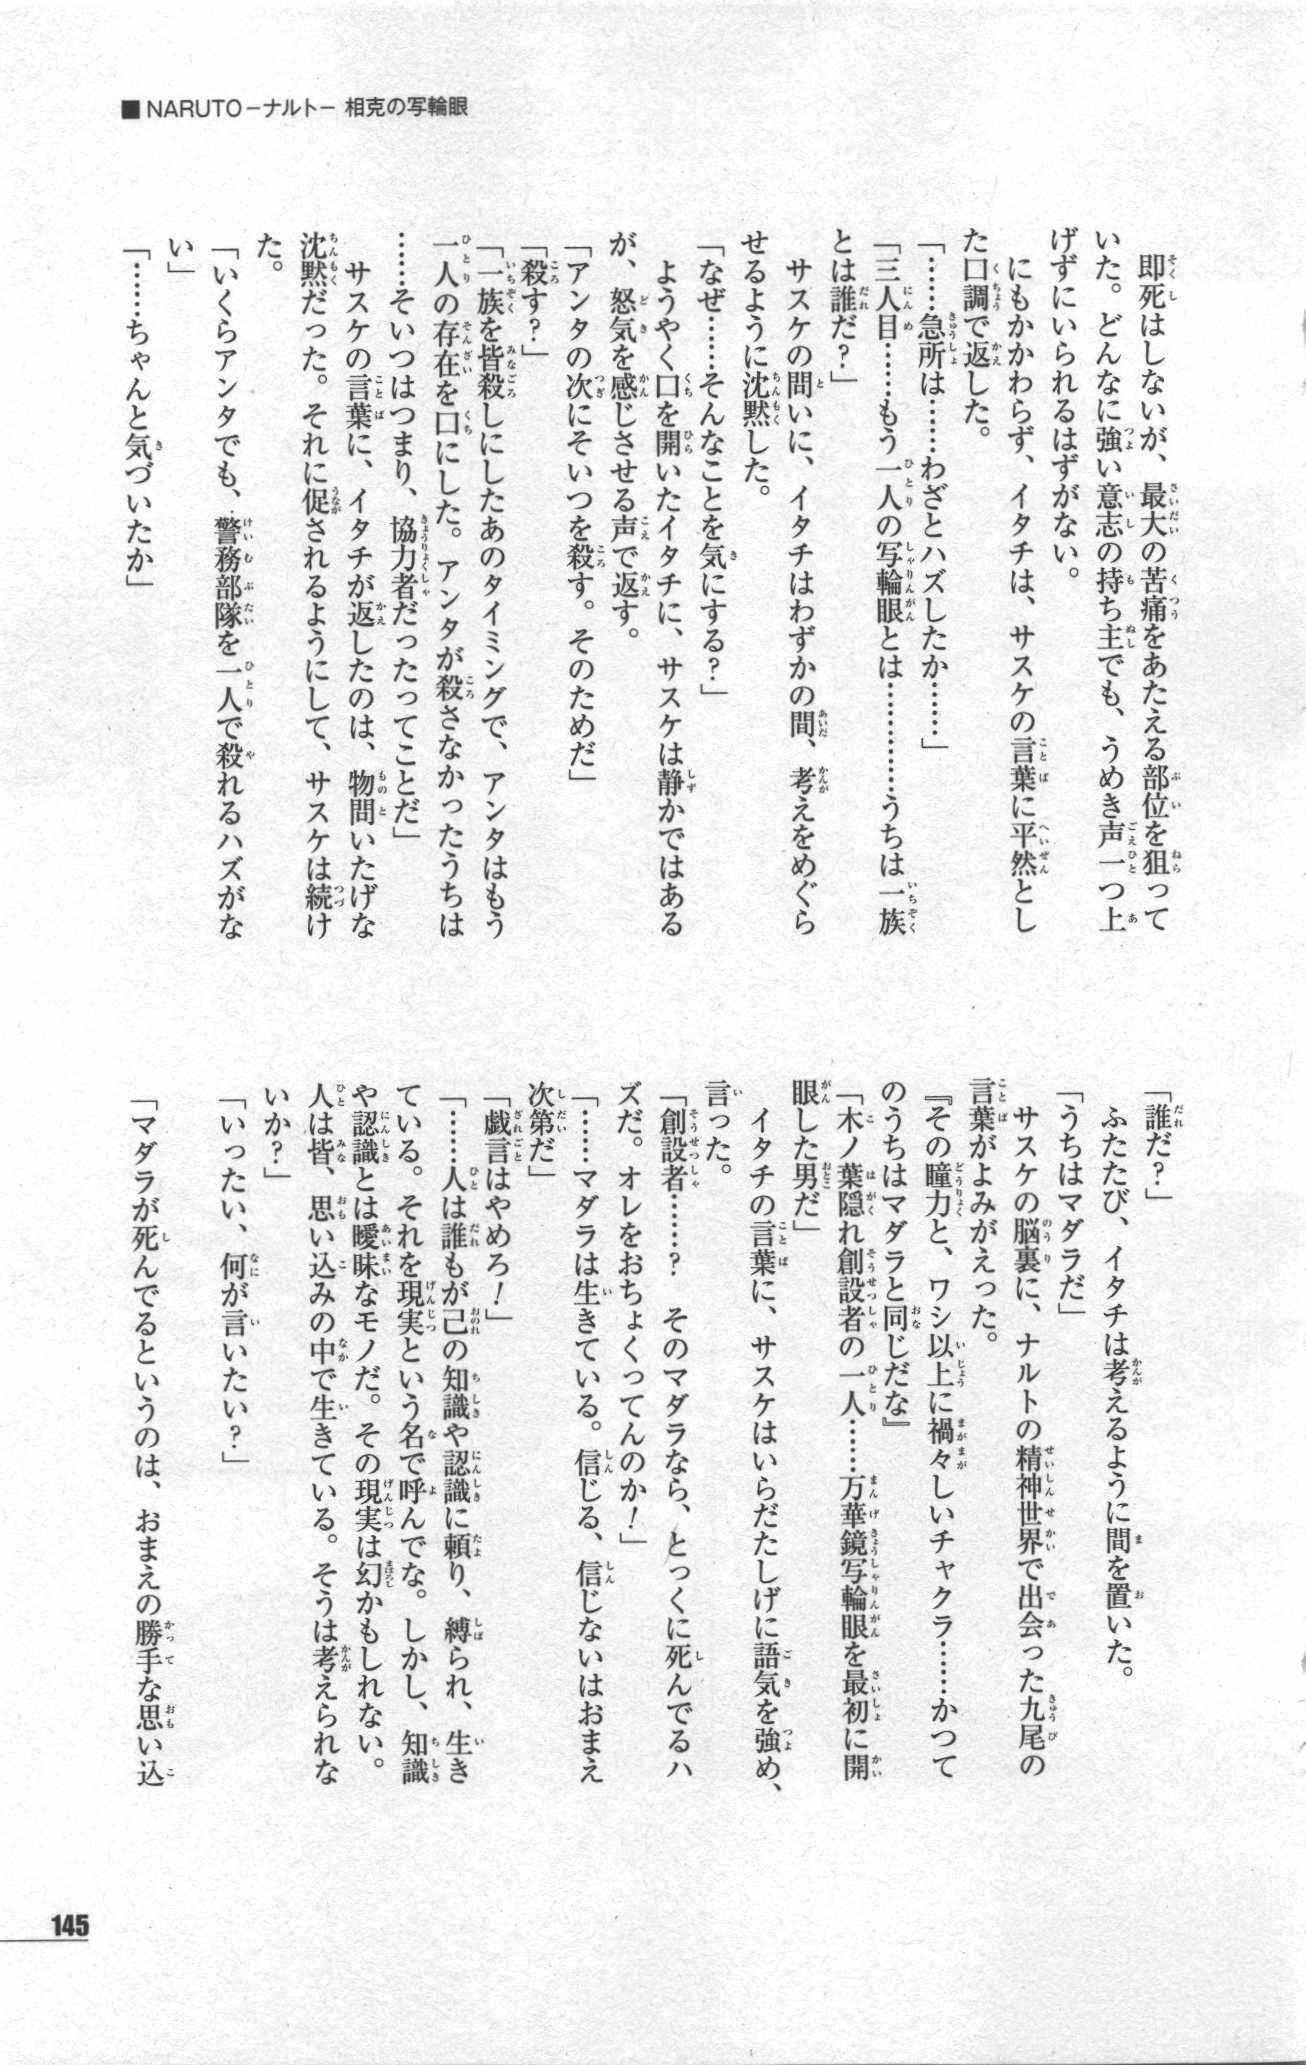 ■NARUTO－ナルト－ 相克の写輪眼
　即死はしないが、最大の苦痛をあたえる部位を狙って
いた。どんなに強い意志の持ち主でも、うめき声一つ上
げずにいられるはずがない。
　にもかかわらず、イタチは、サスケの言葉に平然とし
た口調で返した。
「……急所は……わざとハズしたか……」
「三人目……もう一人の写輪眼とは…………うちは一族
とは誰だ？」
　サスケの問いに、イタチはわずかの間、考えをめぐら
せるように沈黙した。
「なぜ……そんなことを気にする？」
　ようやく口を開いたイタチに、サスケは静かではある
が、怒気を感じさせる声で返す。
「アンタの次にそいつを殺す。そのためだ」
「殺す？」
「一族を皆殺しにしたあのタイミングで、アンタはもう
一人の存在を口にした。アンタが殺さなかったうちは
……そいつはつまり、協力者だったってことだ」
　サスケの言葉に、イタチが返したのは、物問いたげな
沈黙だった。それに促されるようにして、サスケは続け
た。
「いくらアンタでも、警務部隊を一人で殺れるハズがな
い」
「……ちゃんと気づいたか」
「誰だ？」
　ふたたび、イタチは考えるように間を置いた。
「うちはマダラだ」
　サスケの脳裏に、ナルトの精神世界で出会った九尾の
言葉がよみがえった。
『その瞳力と、ワシ以上に禍々しいチャクラ……かつて
のうちはマダラと同じだな』
「木ノ葉隠れ創設者の一人……万華鏡写輪眼を最初に開
眼した男だ」
　イタチの言葉に、サスケはいらだたしげに語気を強め、
言った。
「創設者……？　そのマダラなら、とっくに死んでるハ
ズだ。オレをおちょくってんのか！」
「……マダラは生きている。信じる、信じないはおまえ
次第だ」
「戯言はやめろ！」
「……人は誰もが己の知識や認識に頼り、縛られ、生き
ている。それを現実という名で呼んでな。しかし、知識
や認識とは曖昧なモノだ。その現実は幻かもしれない。
人は皆、思い込みの中で生きている。そうは考えられな
いか？」
「いったい、何が言いたい？」
「マダラが死んでるというのは、おまえの勝手な思い込
145